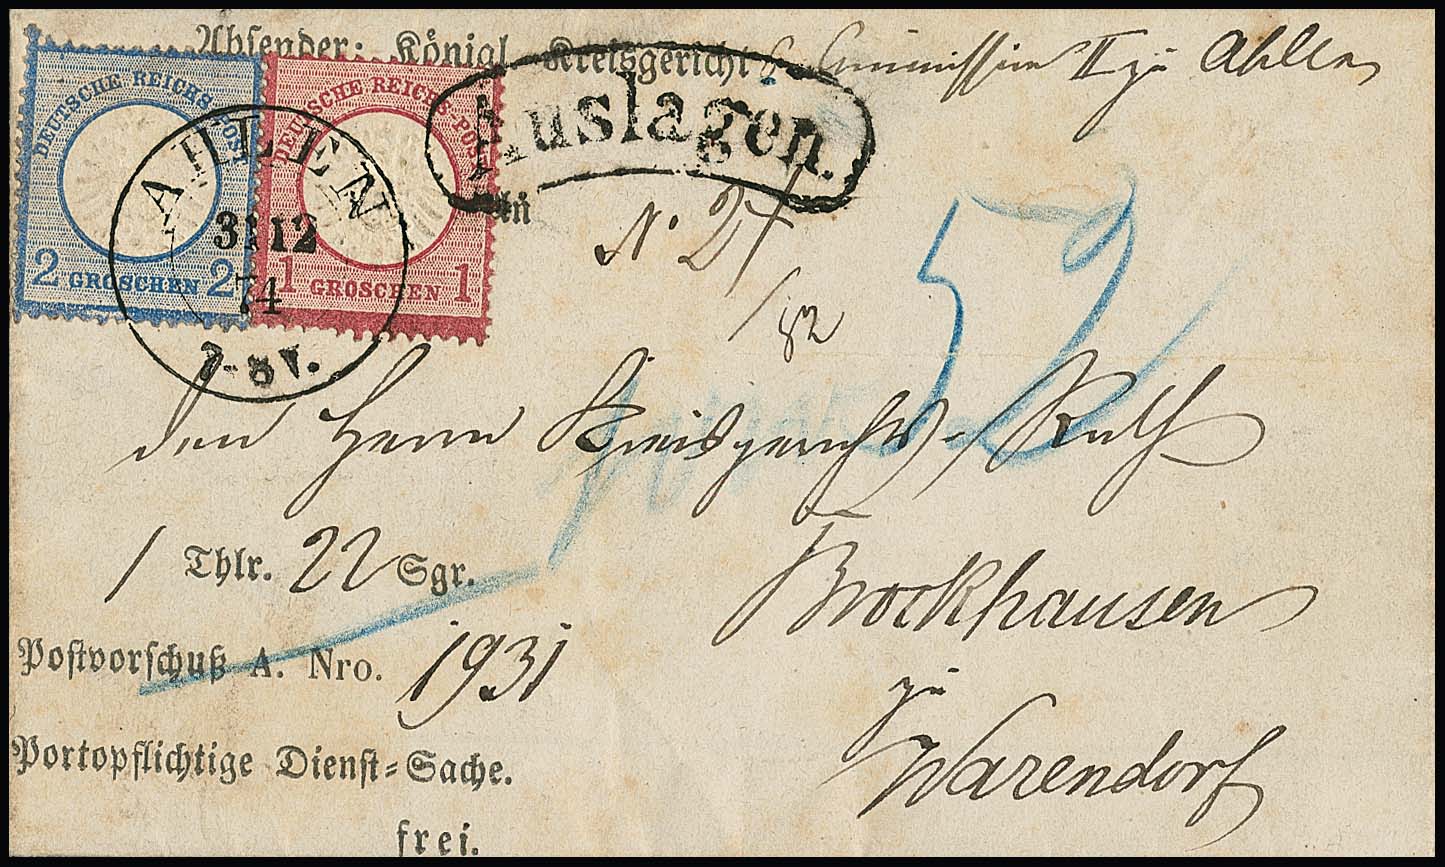 Absender: Königl. Kreisgericht Commission II zu Ahlen
DEUTSCHE REICHS-POST
2 GROSCHEN 2
DEUTSCHE REICHS-POST
1 GROSCHEN 1
AHLEN
31 12
74
7-8 V.
Auslagen.
An
No 27
/82
52
den Herrn Kreisgerichts-Rath
Brockhausen
zu
Warendorf
1 Thlr. 22 Sgr.
Postvorschuß A. Nro. 1931
Portopflichtige Dienst-Sache.
frei.